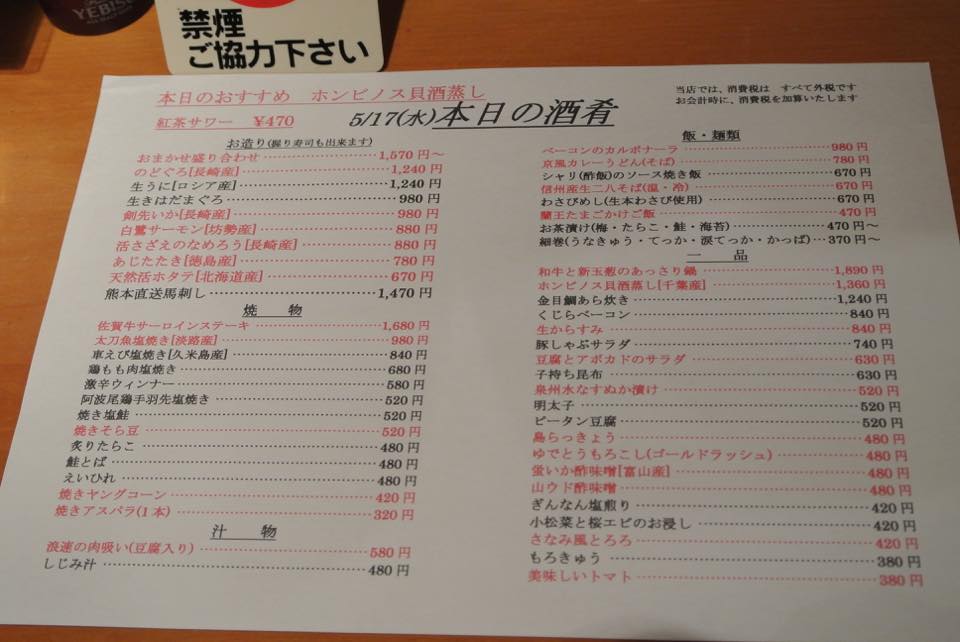 YEBISU
禁煙
ご協力下さい
本日のおすすめ　ホンビノス貝酒蒸し
紅茶サワー　￥470
5/17(水)本日の酒肴
当店では、消費税は　すべて外税です
お会計時に、消費税を加算いたします
お造り(握り寿司も出来ます)
おまかせ盛り合わせ 1,570円～
のどぐろ[長崎産] 1,240円
生うに[ロシア産] 1,240円
生きはだまぐろ 980円
剣先いか[長崎産] 980円
白鷺サーモン[坊勢産] 880円
活さざえのなめろう[長崎産] 880円
あじたたき[徳島産] 780円
天然活ホタテ[北海道産] 670円
熊本直送馬刺し 1,470円
焼　物
佐賀牛サーロインステーキ 1,680円
太刀魚塩焼き[淡路産] 980円
車えび塩焼き[久米島産] 840円
鶏もも肉塩焼き 680円
激辛ウィンナー 580円
阿波尾鶏手羽先塩焼き 520円
焼き塩鮭 520円
焼きそら豆 520円
炙りたらこ 480円
鮭とば 480円
えいひれ 480円
焼きヤングコーン 420円
焼きアスパラ(1本) 320円
汁　物
浪速の肉吸い(豆腐入り) 580円
しじみ汁 480円
飯・麺類
ベーコンのカルボナーラ 980円
京風カレーうどん(そば) 780円
シャリ(酢飯)のソース焼き飯 670円
信州産生二八そば(温・冷) 670円
わさびめし(生本わさび使用) 670円
蘭王たまごかけご飯 470円
お茶漬け(梅・たらこ・鮭・海苔) 470円～
細巻(うなきゅう・てっか・涙てっか・かっぱ) 370円～
一　品
和牛と新玉葱のあっさり鍋 1,890円
ホンビノス貝酒蒸し[千葉産] 1,360円
金目鯛あら炊き 1,240円
くじらベーコン 840円
生からすみ 840円
豚しゃぶサラダ 740円
豆腐とアボカドのサラダ 630円
子持ち昆布 630円
泉州水なすぬか漬け 520円
明太子 520円
ピータン豆腐 520円
島らっきょう 480円
ゆでとうもろこし(ゴールドラッシュ) 480円
蛍いか酢味噌[富山産] 480円
山ウド酢味噌 480円
ぎんなん塩煎り 420円
小松菜と桜エビのお浸し 420円
さなみ風とろろ 420円
もろきゅう 380円
美味しいトマト 380円